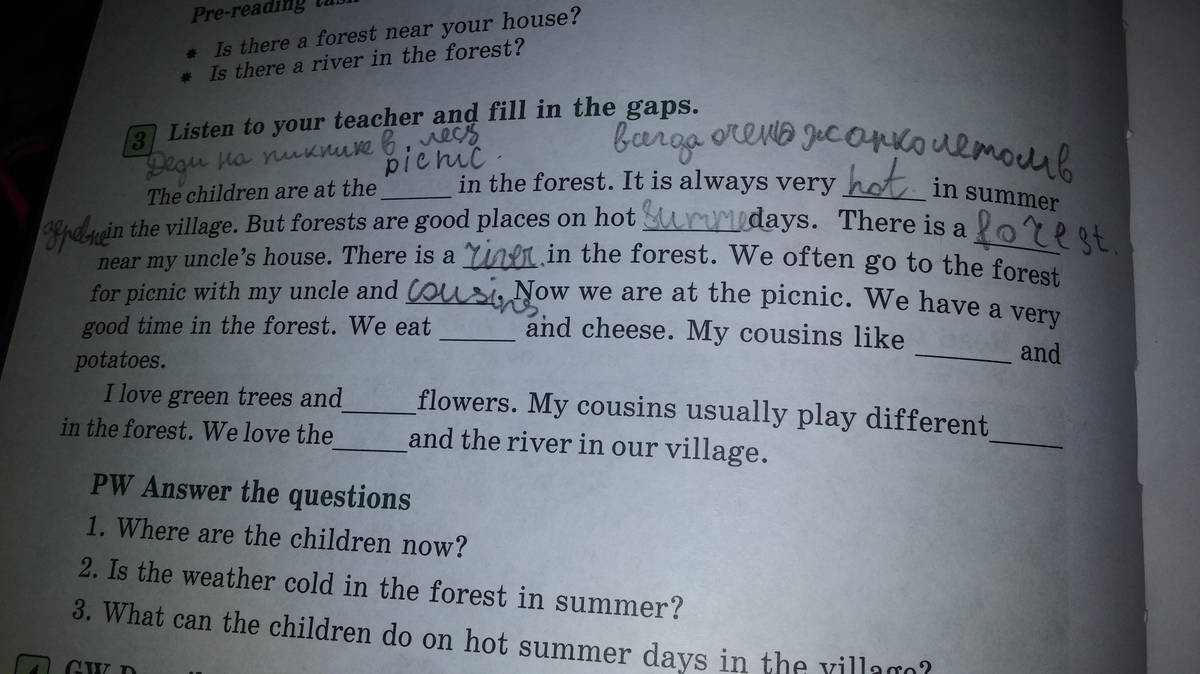 Pre-reading
* Is there a forest near your house?
* Is there a river in the forest?
3 Listen to your teacher and fill in the gaps.
на пикнике в лесу
очень жарко летом в
picnic.
The children are at the ______ in the forest. It is always very hot in summer
in the village. But forests are good places on hot summe days. There is a forest.
near my uncle's house. There is a river in the forest. We often go to the forest
for picnic with my uncle and cousins. Now we are at the picnic. We have a very
good time in the forest. We eat ______ and cheese. My cousins like ______ and
potatoes.
I love green trees and ______ flowers. My cousins usually play different ______
in the forest. We love the ______ and the river in our village.
PW Answer the questions
1. Where are the children now?
2. Is the weather cold in the forest in summer?
3. What can the children do on hot summer days in the village?
4 GW